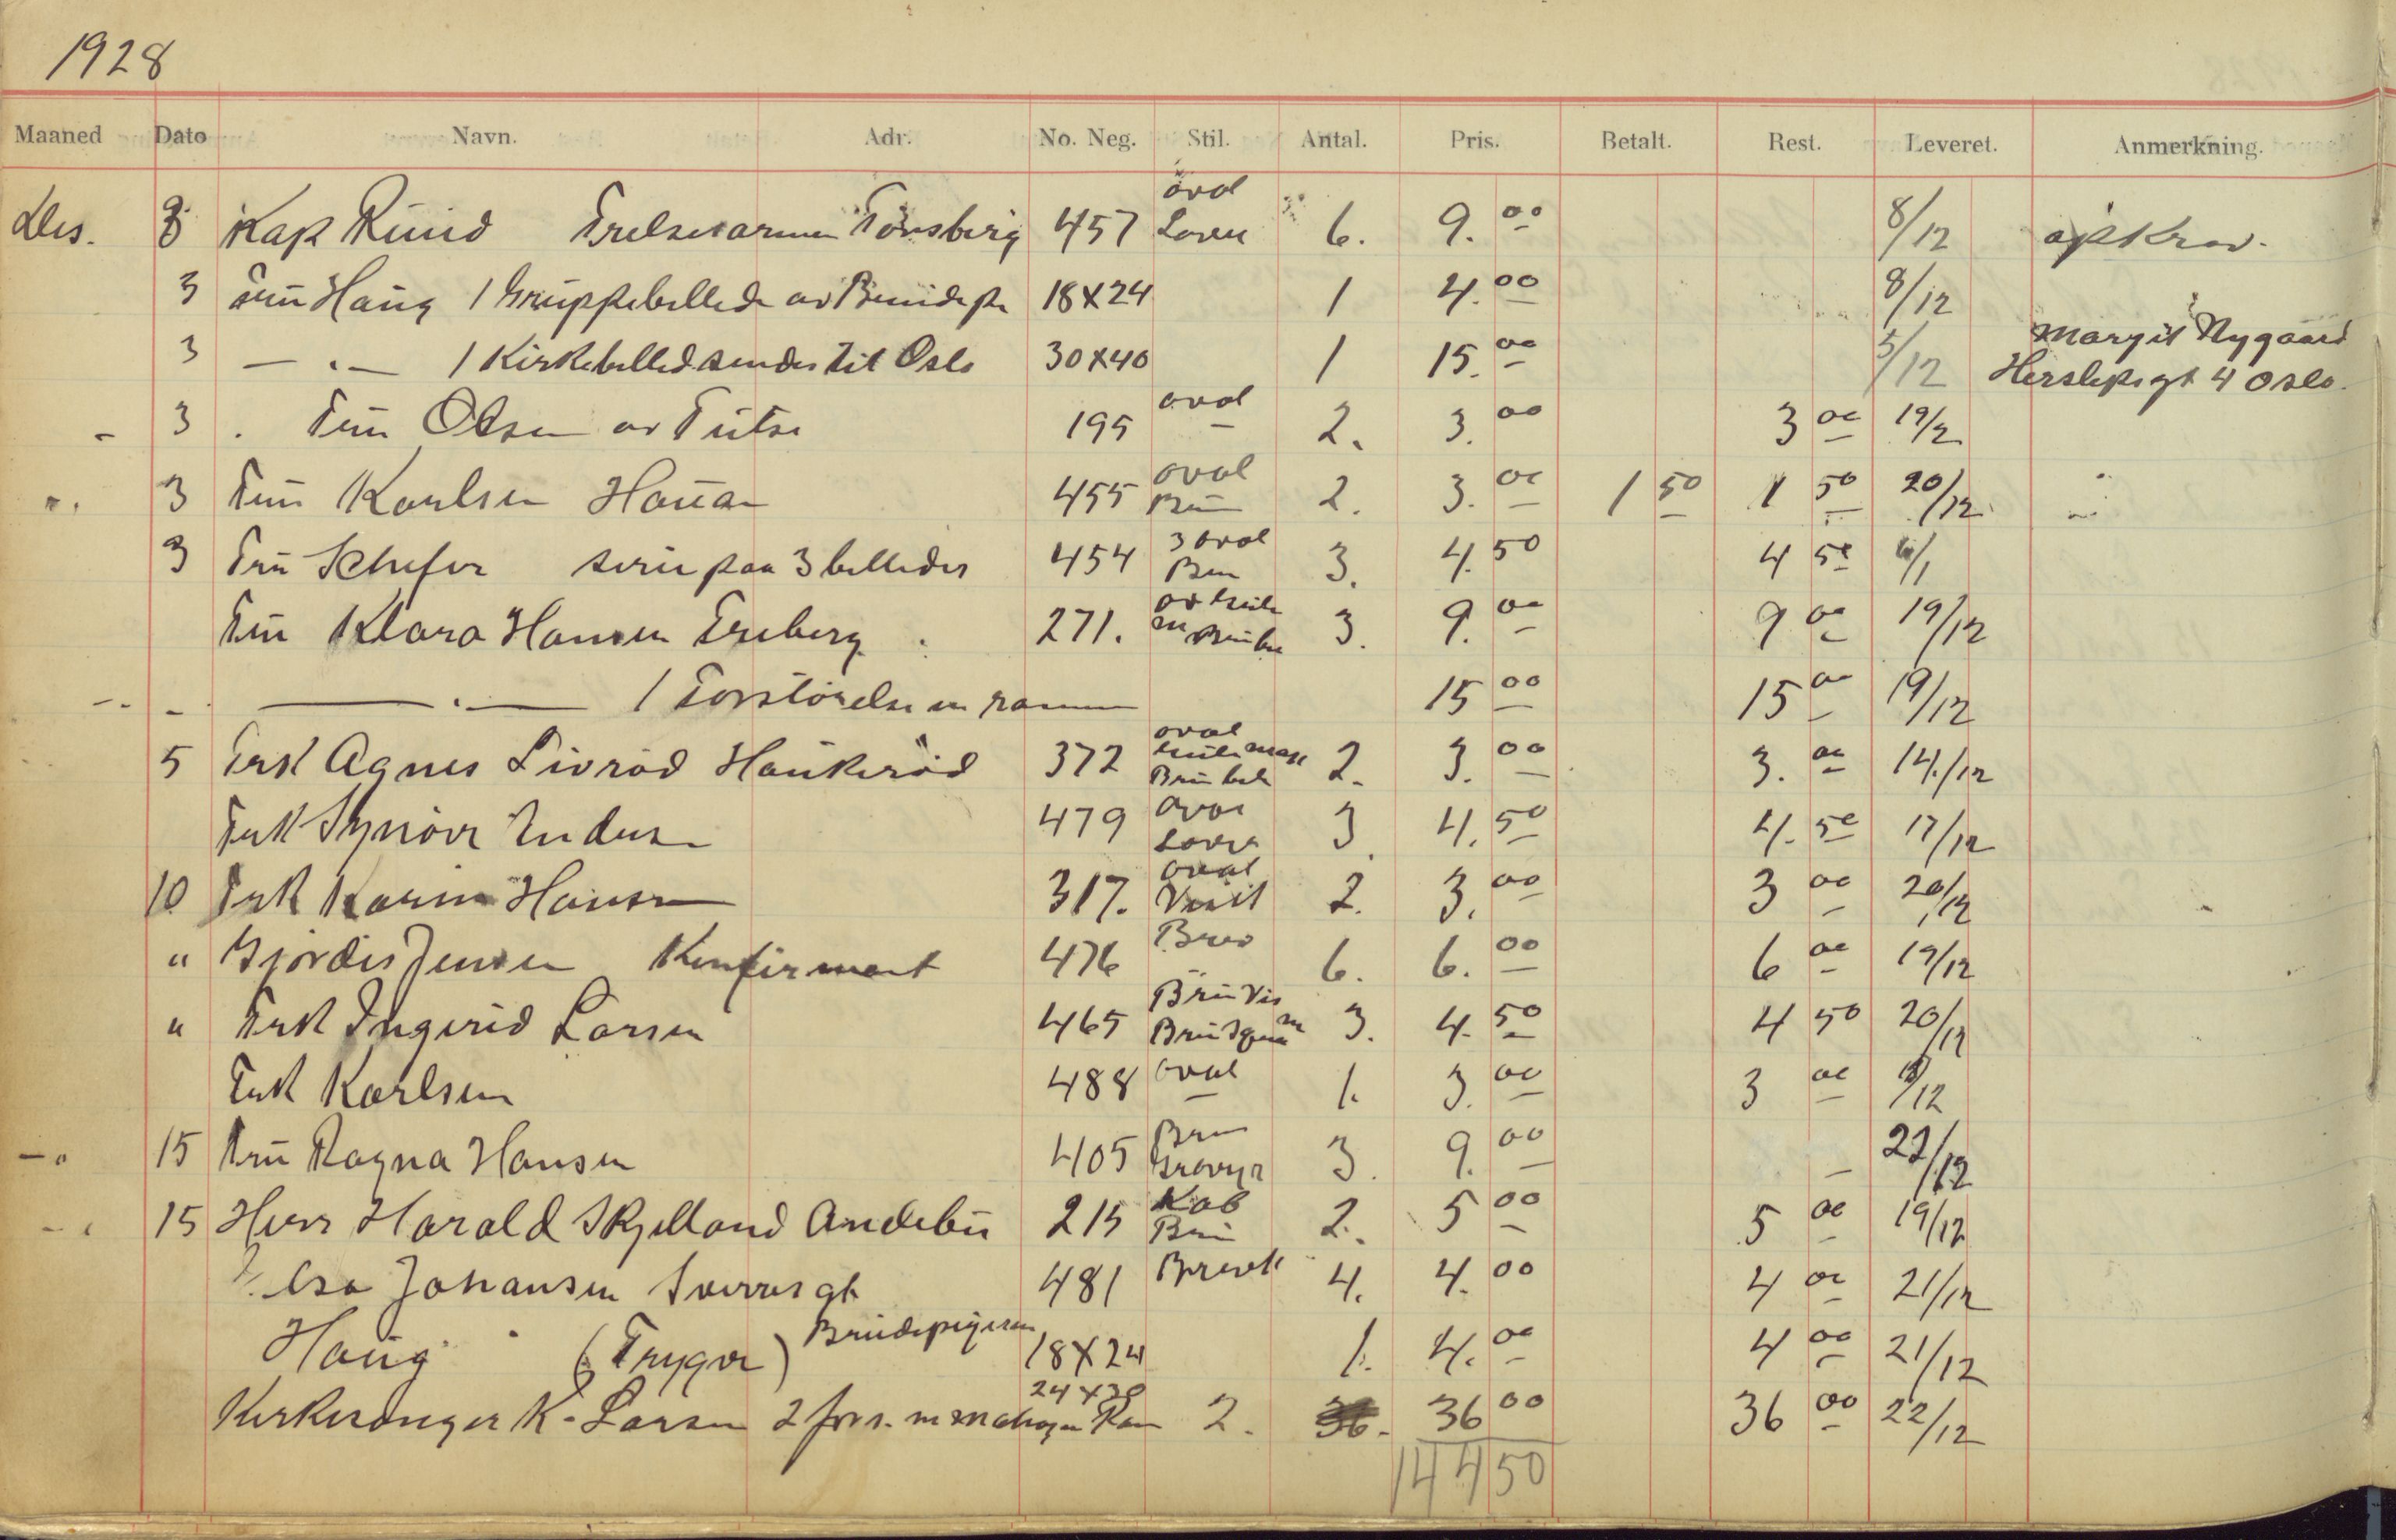 1928
Maaned Dato Navn. Adr. No. Neg. Stil. Antal. Pris. Betalt. Rest. Leveret. Anmerkning.
Des. 3 Kap Ruud Frelsesarmeen Tönsberg 457 oval 6. 9.00 8/12 opkrav.
3 Fru Haug 1 Gruppebillede av 18x24 1 4.00 8/12
3 —.— 1 Kirkebilled sendes til Oslo 30x40 1 15.00 5/12 Margit Nygaard Herslepsgt 4 Oslo.
- 3 . Fru Olsen av Tutse 195 oval 2. 3.00 3 00 19/2
". 3 Fru Karlsen Hauan 455 oval Brun 2. 3.00 1 50 1 50 20/12
3 Fru Schefer serie paa 3 billeder 454 3 oval Brun 3. 4.50 4 50
Fru Klara Hansen 271. 3. 9.00 9 00 19/12
-. - ——.—— 1 Forstörelse m ramme 15 00 15 00 19/12
5 Frk Agnes Livröd Haukeröd 372 oval 2. 3.00 3.00 14./12
Frk Synöve 479 oval 3 4.50 4.50 17/12
10 Frk Karin Hansen 317. oval Visit 2. 3.00 3 00 20/12
" Hjördis Jensen Konfirmant 476 Brev 6. 6.00 6 00 19/12
" Frk Ingerid Larsen 465 3. 4.50 4 50 20/12
Frk Karlsen 488 oval 1. 3.00 3 00
-. 15 Fru Ragna Hansen 405 Brun Gravyr 3. 9.00 — 22/12
-. 15 Herr Harald Skjelland Andebu 215 Kab Brun 2. 5 00 5 00 19/12
Esa Johansen Sverresgt 481 Brevk 4. 4.00 4 00 21/12
Haug (Trygve) Brudepigerne 18x24 1. 4.00 4 00 21/12
Kirkesanger K. Larsen 2 fors. m mahogn Ram 24x30 2. 36. 36 00 36 00 22/12
144 50